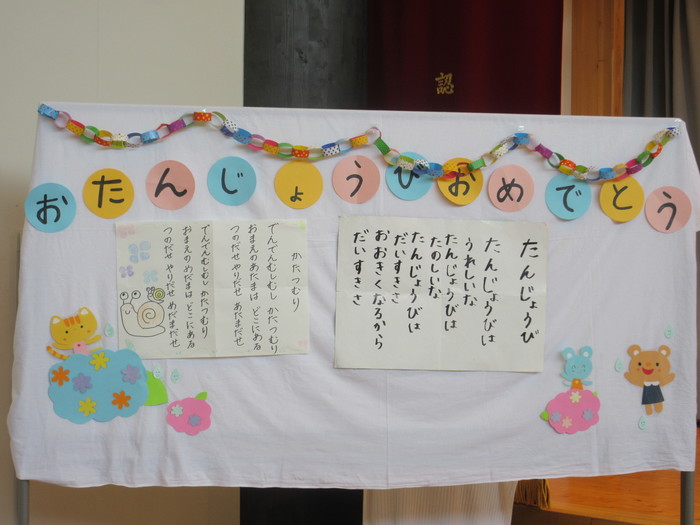 認
おたんじょうびおめでとう
かたつむり
でんでんむしむし かたつむり
おまえのあたまは どこにある
つのだせ やりだせ あたまだせ
でんでんむしむし かたつむり
おまえのめだまは どこにある
つのだせ やりだせ めだまだせ
たんじょうび
たんじょうびは
うれしいな
たんじょうびは
たのしいな
たんじょうびは
だいすきさ
おおきくなるから
だいすきさ